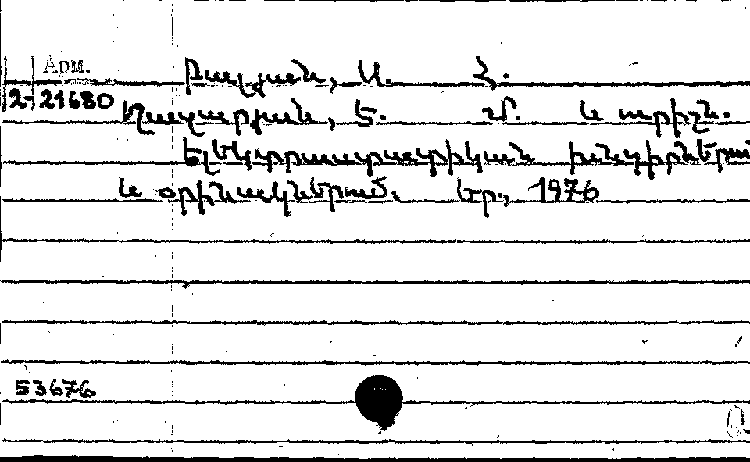 Арм.
Բալյան, Ա. Հ.
2-21680
Ղազարյան, Ե. Մ. և ուրիշն.
Էլեկտրաստատիկան խնդիրներում
և օրինակներում. Եր., 1976
53676